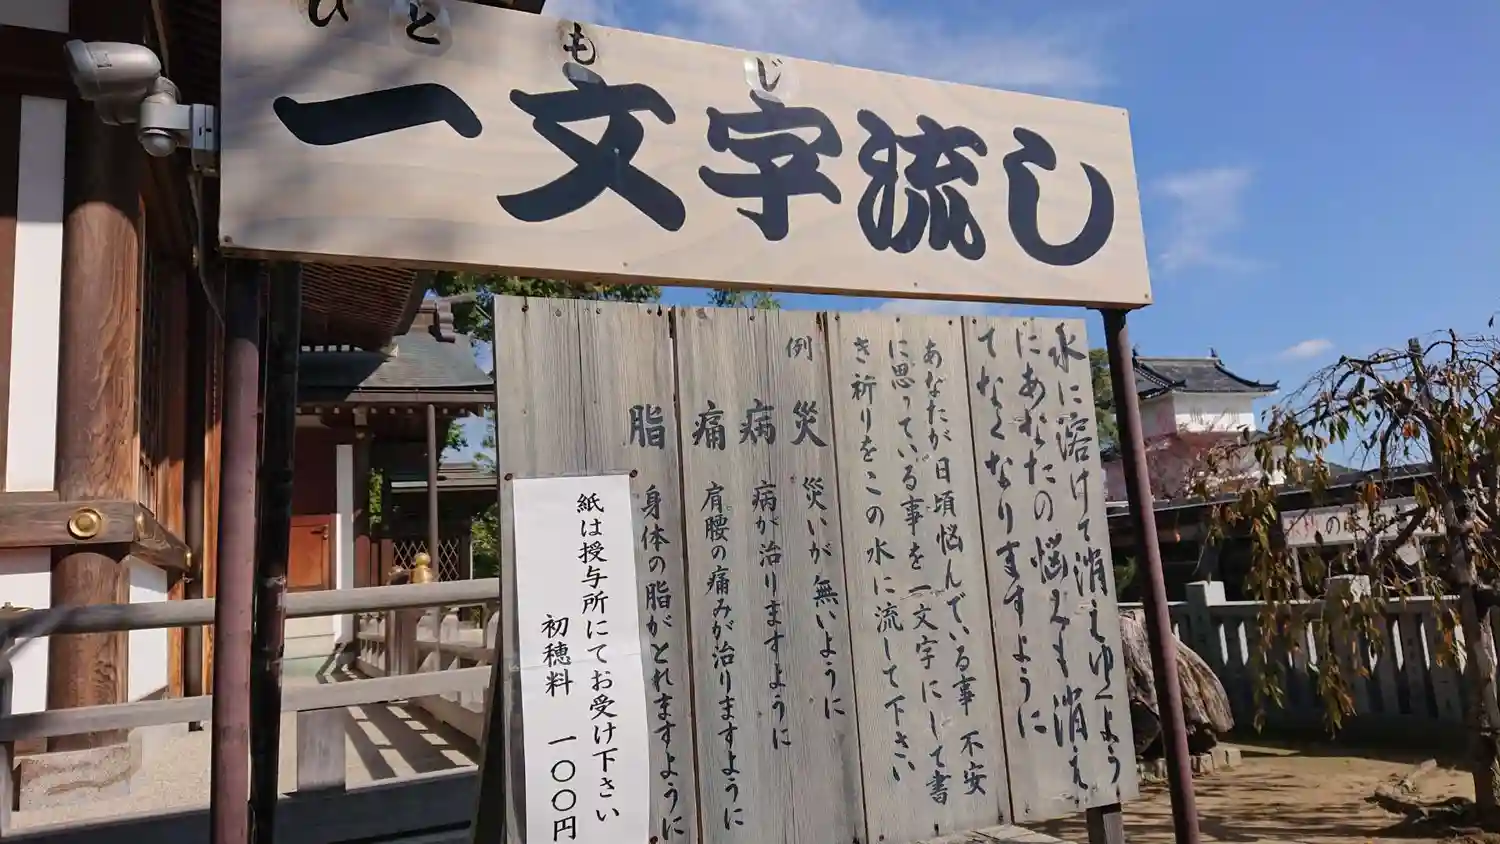 ひともじ
一文字流し
水に溶けて消えゆくよう
にあなたの悩みも消え
てなくなりますように
あなたが日頃悩んでいる事 不安
に思っている事を一文字にして書
き祈りをこの水に流して下さい
例 災 災いが無いように
病 病が治りますように
痛 肩腰の痛みが治りますように
脂 身体の脂がとれますように
紙は授与所にてお受け下さい
初穂料 一〇〇円